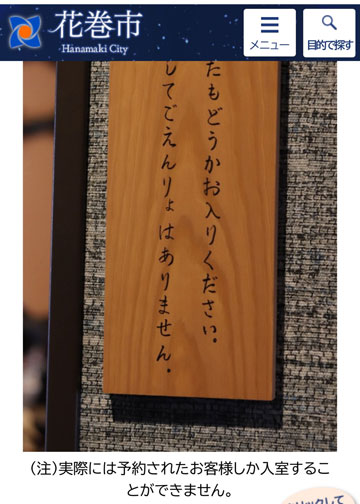 花巻市
Hanamaki City
メニュー
目的で探す
たもどうかお入りください。
してごえんりょはありません。
(注)実際には予約されたお客様しか入室するこ
とができません。